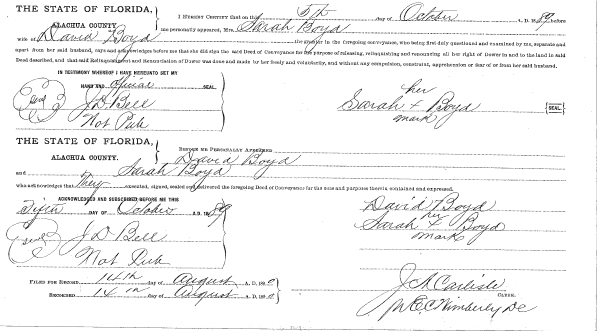 THE STATE OF FLORIDA,
ALACHUA COUNTY.
I HEREBY CERTIFY that on this 5th day of October A. D. 1889, before
me personally appeared, Mrs. Sarah Boyd
wife of David Boyd the grantor in the foregoing conveyance, who being first duly questioned and examined by me, separate and
apart from her said husband, says and acknowledges before me that she did sign the said Deed of Conveyance for the purpose of releasing, relinquishing and renouncing all her right of Dower in and to the land in said
Deed described, and that said Relinquishment and Renunciation of Dower was done and made by her freely and voluntarily, and without any compulsion, constraint, apprehension or fear of or from her said husband.
IN TESTIMONY WHEREOF I HAVE HEREUNTO SET MY
HAND AND official SEAL.
Seal J D Bell
Not Pub
her
Sarah + Boyd SEAL
mark
THE STATE OF FLORIDA,
ALACHUA COUNTY.
BEFORE ME PERSONALLY APPEARED
David Boyd
and Sarah Boyd
who acknowledges that They executed, signed, sealed and delivered the foregoing Deed of Conveyance for the uses and purposes therein contained and expressed.
ACKNOWLEDGED AND SUBSCRIBED BEFORE ME THIS
DAY OF October A. D. 1889
Seal J D Bell
Not Pub
David Boyd
her
Sarah + Boyd
mark
FILED FOR RECORD 14th day of August A. D. 189
RECORDED 14th day of August A. D. 189
J A Carlisle
CLERK.
Wimberly DC